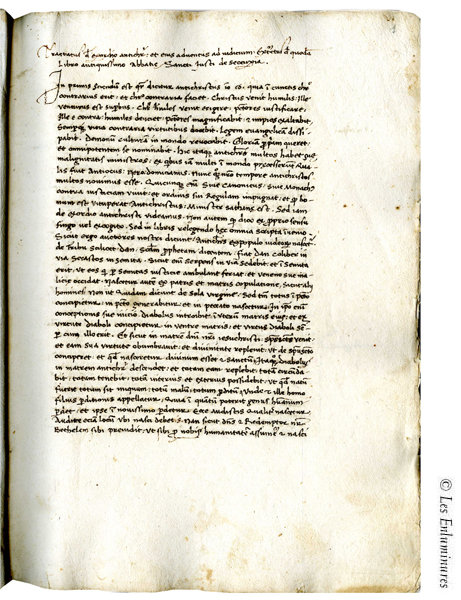 Tractatus de exordio antichristi et eius adventus ad iudicium. Extractus de quodam
Libro antiquissimo abbatie Sancti Justi de Secuxia
In primis sciendum est quare dicatur antichristus ideo quia in cunctis christo
contrarius erit et christo contraria faciet. Christus venit humilis: Ille
venturus est superbus. Christus humiles venit erigere, peccatores iustificare:
Ille e contra: humiles deiciet, peccatores magnificabit et impios exaltabit.
Semperque vitia contraria virtutibus docebit. Legem evangelicam dissi-
pabit. Demonum culturam in mundo revocabit. Gloriam propriam queret
et omnipotentem se nominabit. Hic itaque antichristus multos habet sue
malignitatis ministros: ex quibus iam multi in mundo precesserunt. Qua-
lis fuit Antiocus: Nero: domicianus. Nunc quoque nostro tempore antichristos
multos novimus esse. Quicumque enim sive Canonicus: sive Monachus
contra iusticiam vivit et ordinis sui Regulam impugnat: et quod bo-
num est vituperat Antichristus: Minister sathane est. Sed iam
de exordio antichristi videamus. Non autem quod dico ex proprio sensu
fingo vel excogito. Sed in libris relegendo hec omnia scripta invenio
Sicut ergo auctores nostri dicunt: Antichristus ex populo iudeorum nascetur
de tribu scilicet dan. Secundum prophetam dicentem: fiat dan coluber in
via Cerastes in semita. Sicut enim serpens in via sedebit: et in semita
erit: ut eos qui per semitas iusticie ambulant feriat: et veneno sue ma-
licie occidat. Nascetur autem ex patris et matris copulatione, sicut alii
homines: Non ut quidam dicunt de sola virgine. Sed tamen totus in peccato
concipietur: in peccato generabitur: et in peccato nascetur. In ipso enim
conceptionis sue initio diabolus introibit in uterum matris eius: et ex
virtute diaboli concipietur in ventre matris: et virtus diaboli sem-
per cum illo erit. Et sicut in matre domini nostri iesu christi: spiritus sanctus venit
et eam sua virtute obumbravit: et divinitate replevit: ut de spiritu sancto
conciperet: et quod nasceretur divinum esset et sanctum: Itaque diabolus
in matrem antichristi descendet: et totam eam replebit: totam circunda-
bit: totam tenebit: totam interius et exterius possidebit: ut quod natum
fuerit totum sit iniquum: totum malum: totum perditum. Unde et ille homo
filius perditionis appellatur: Quia in quantum poterit genus humanum
perdet: et ipse in novissimo perdetur. Ecce audistis qualiter nascetur
Audite etiam locum ubi nasci debet. Nam sicut dominus et Redemptor noster
Bethelem sibi previdit: ut sibi pro nobis humanitatem assumeret et nasci
© Les Enluminures